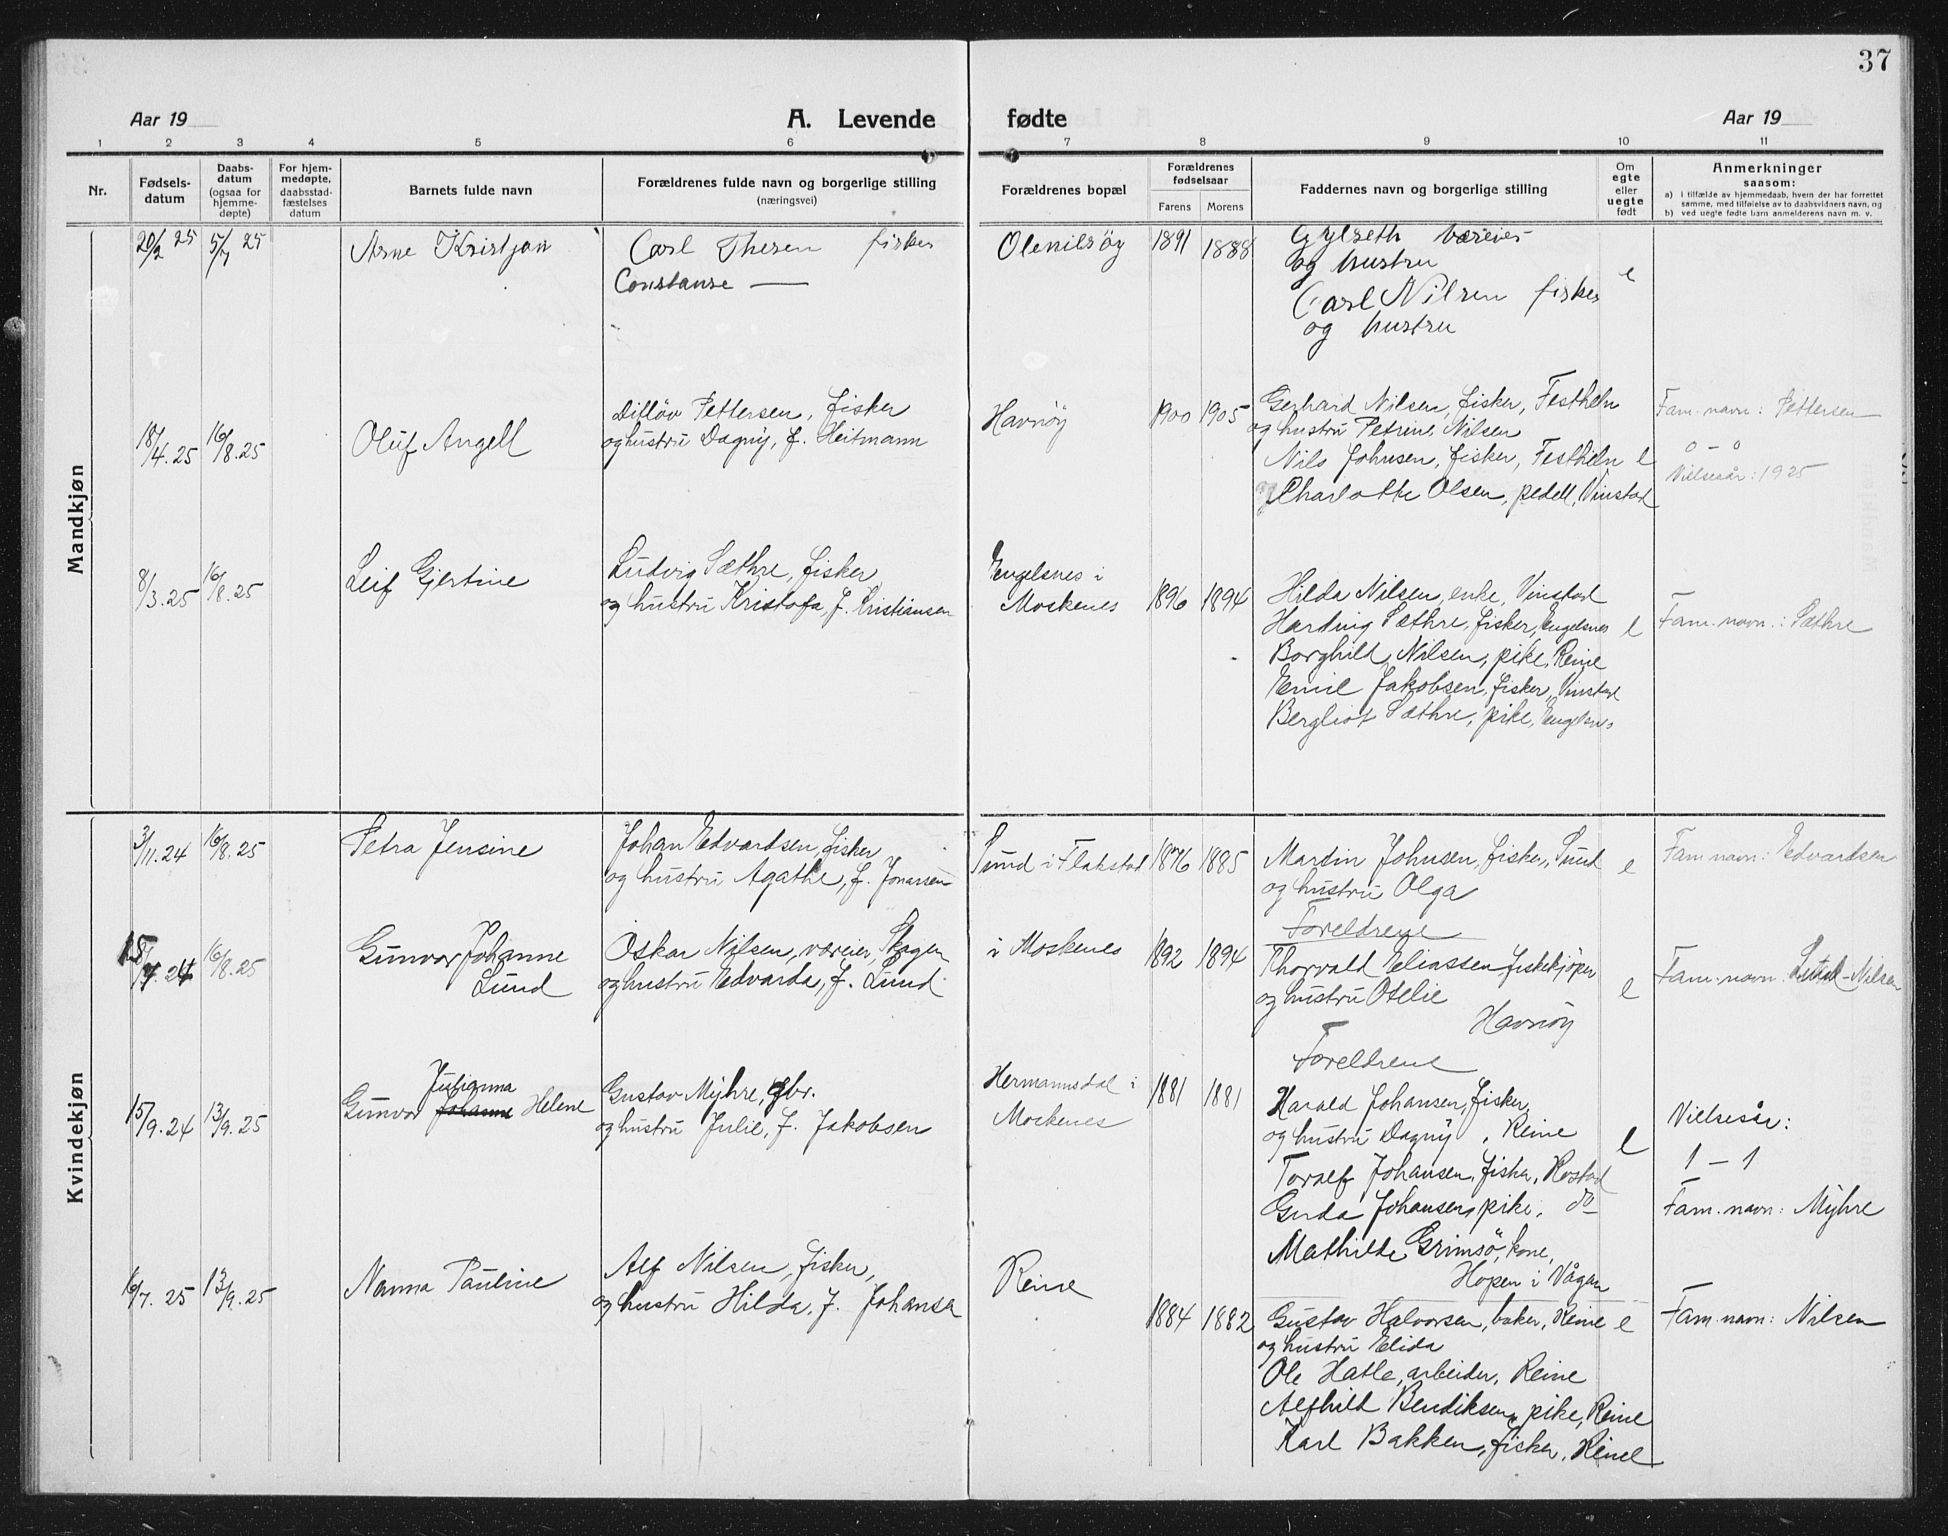 37
Aar 19
A. Levende
fødte
Aar 19
1 2 3 4 5 6 7 8 9 10 11
Nr.
Fødsels-
datum
Daabs-
datum
(ogsaa for
hjemme-
døpte)
For hjem-
medøpte,
daabsstad-
fæstelses
datum
Barnets fulde navn
Forældrenes fulde navn og borgerlige stilling
(næringsvei)
Forældrenes bopæl
Forældrenes
fødselsaar
Farens
Morens
Faddernes navn og borgerlige stilling
Om
egte
eller
uegte
født
Anmerkninger
saasom:
a) i tilfælde av hjemmedaab, hvem der har forrettet
samme, med tilføielse av to daabsvidners navn, og
b) ved uegte fødte barn anmelderens navn m. v.
Mandkjøn
20/2 25 5/7 25
Arne Kristjan
Carl Thesen fisker
Constanse —
Olenilsøy
1891 1888
Gylseth væreier
og hustru
Carl Nilsen fisker
og hustru
e
18/4. 25 16/8. 25
Oluf Angell
Ditløv Pettersen, fisker
og hustru Dagny, f. Heitmann
Havnøy
1900 1905
Gerhard Nilsen, fisker, Festheln
og hustru Petrine Nilsen
Nils Johnsen, fisker, Festheln
Charlotte Olsen, pedell, Vinstad
e
Fam. navn: Pettersen
0 – 0
Vielsesår: 1925
8/3. 25 16/8. 25
Leif Gjertine
Ludvig Sæthre, fisker
og hustru Kristofa, f. Kristiansen
Engelsnes i
Moskenes
1896 1894
Hilda Nilsen, enke, Vinstad
Hardvig Sæthre, fisker, Engelsnes
Borghild Nilsen, pike, Reine
Emil Jakobsen, fisker, Vinstad
Bergliot Sæthre, pike, Engelsnes
e
Fam. navn.: Sæthre
Kvindekjøn
3/11. 24 16/8. 25
Petra Jensine
Johan Edvardsen, fisker
og hustru Agathe, f. Jonassen
Sund i Flakstad
1876 1885
Martin Johnsen, fisker, Sund
og hustru Olga
Foreldrene
e
Fam. navn: Edvardsen
16/8. 25
Gunvor Johanne
Lund
Oskar Nilsen, væreier, Skagen
og hustru Edvarda, f. Lund
i Moskenes
1892 1894
Thorvald Eliassen, fiskekjøper
og hustru Otelie
Havnøy
Foreldrene
e
Fam. navn: Lund-Nilsen
15/9. 24 13/9. 25
Julianna
Gunvor Johanne Helene
Gustav Myhre, gbr.
og hustru Julie, f. Jakobsen
Hermannsdal i
Moskenes
1881 1881
Harald Johansen, fisker
og hustru Dagny, Reine
Toralf Johansen, fisker, Rostad
Gerda Johansen, pike, do
Mathilde Grimsö, kone,
Hopen i Vågan
e
Vielsesår:
1 – 1
Fam. navn: Myhre
16/7. 25 13/9. 25
Nanna Pauline
Alf Nilsen, fisker,
og hustru Hilda, f. Johansa
Reine
1884 1882
Gustav Halvorsen, baker, Reine
og hustru Elida
Ole Hatle, arbeider, Reine
Alfhild Bendiksen, pike, Reine
Karl Bakken, fisker, Reine
e
Fam. navn: Nilsen